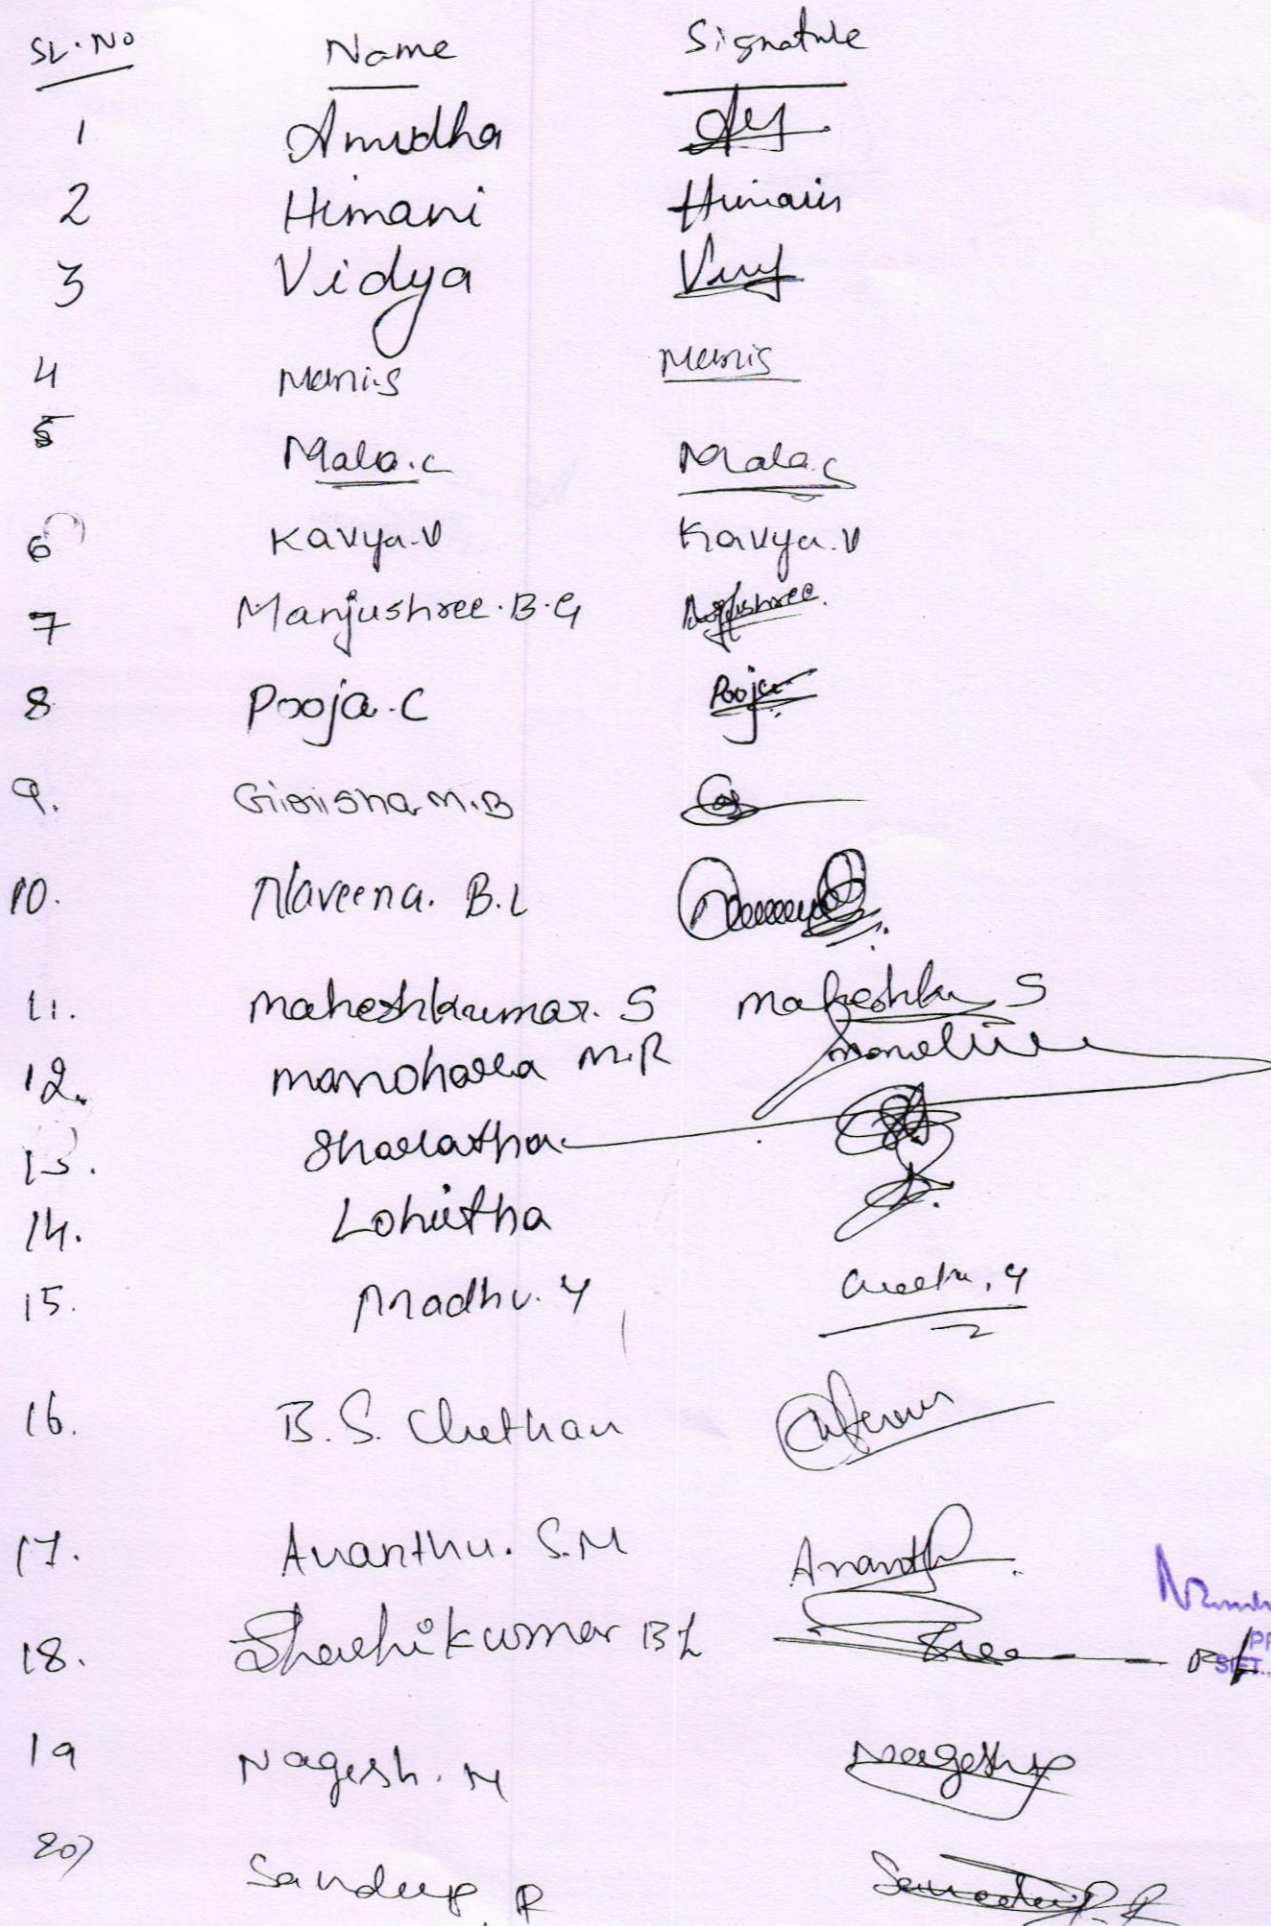 SL.No Name Signature
1 Anudha
2 Himani Himani
3 Vidya
4 Mani.S Mani.S
5 Mala.C Mala.C
6 Kavya.V Kavya.V
7 Manjushree.B.G Manjushree.
8 Pooja.C Pooja
9. Girisha M.B
10. Naveena. B.L
11. Maheshkumar. S
12. Manohara M.R
13. Sharatha
14. Lohitha
15. Madhu.Y
16. B.S. Chethan
17. Ananthu. S.M Ananth
18. Shashikumar B L
19 Nagesh. M Nagesh
20) Sandeep. R Sandeep. R